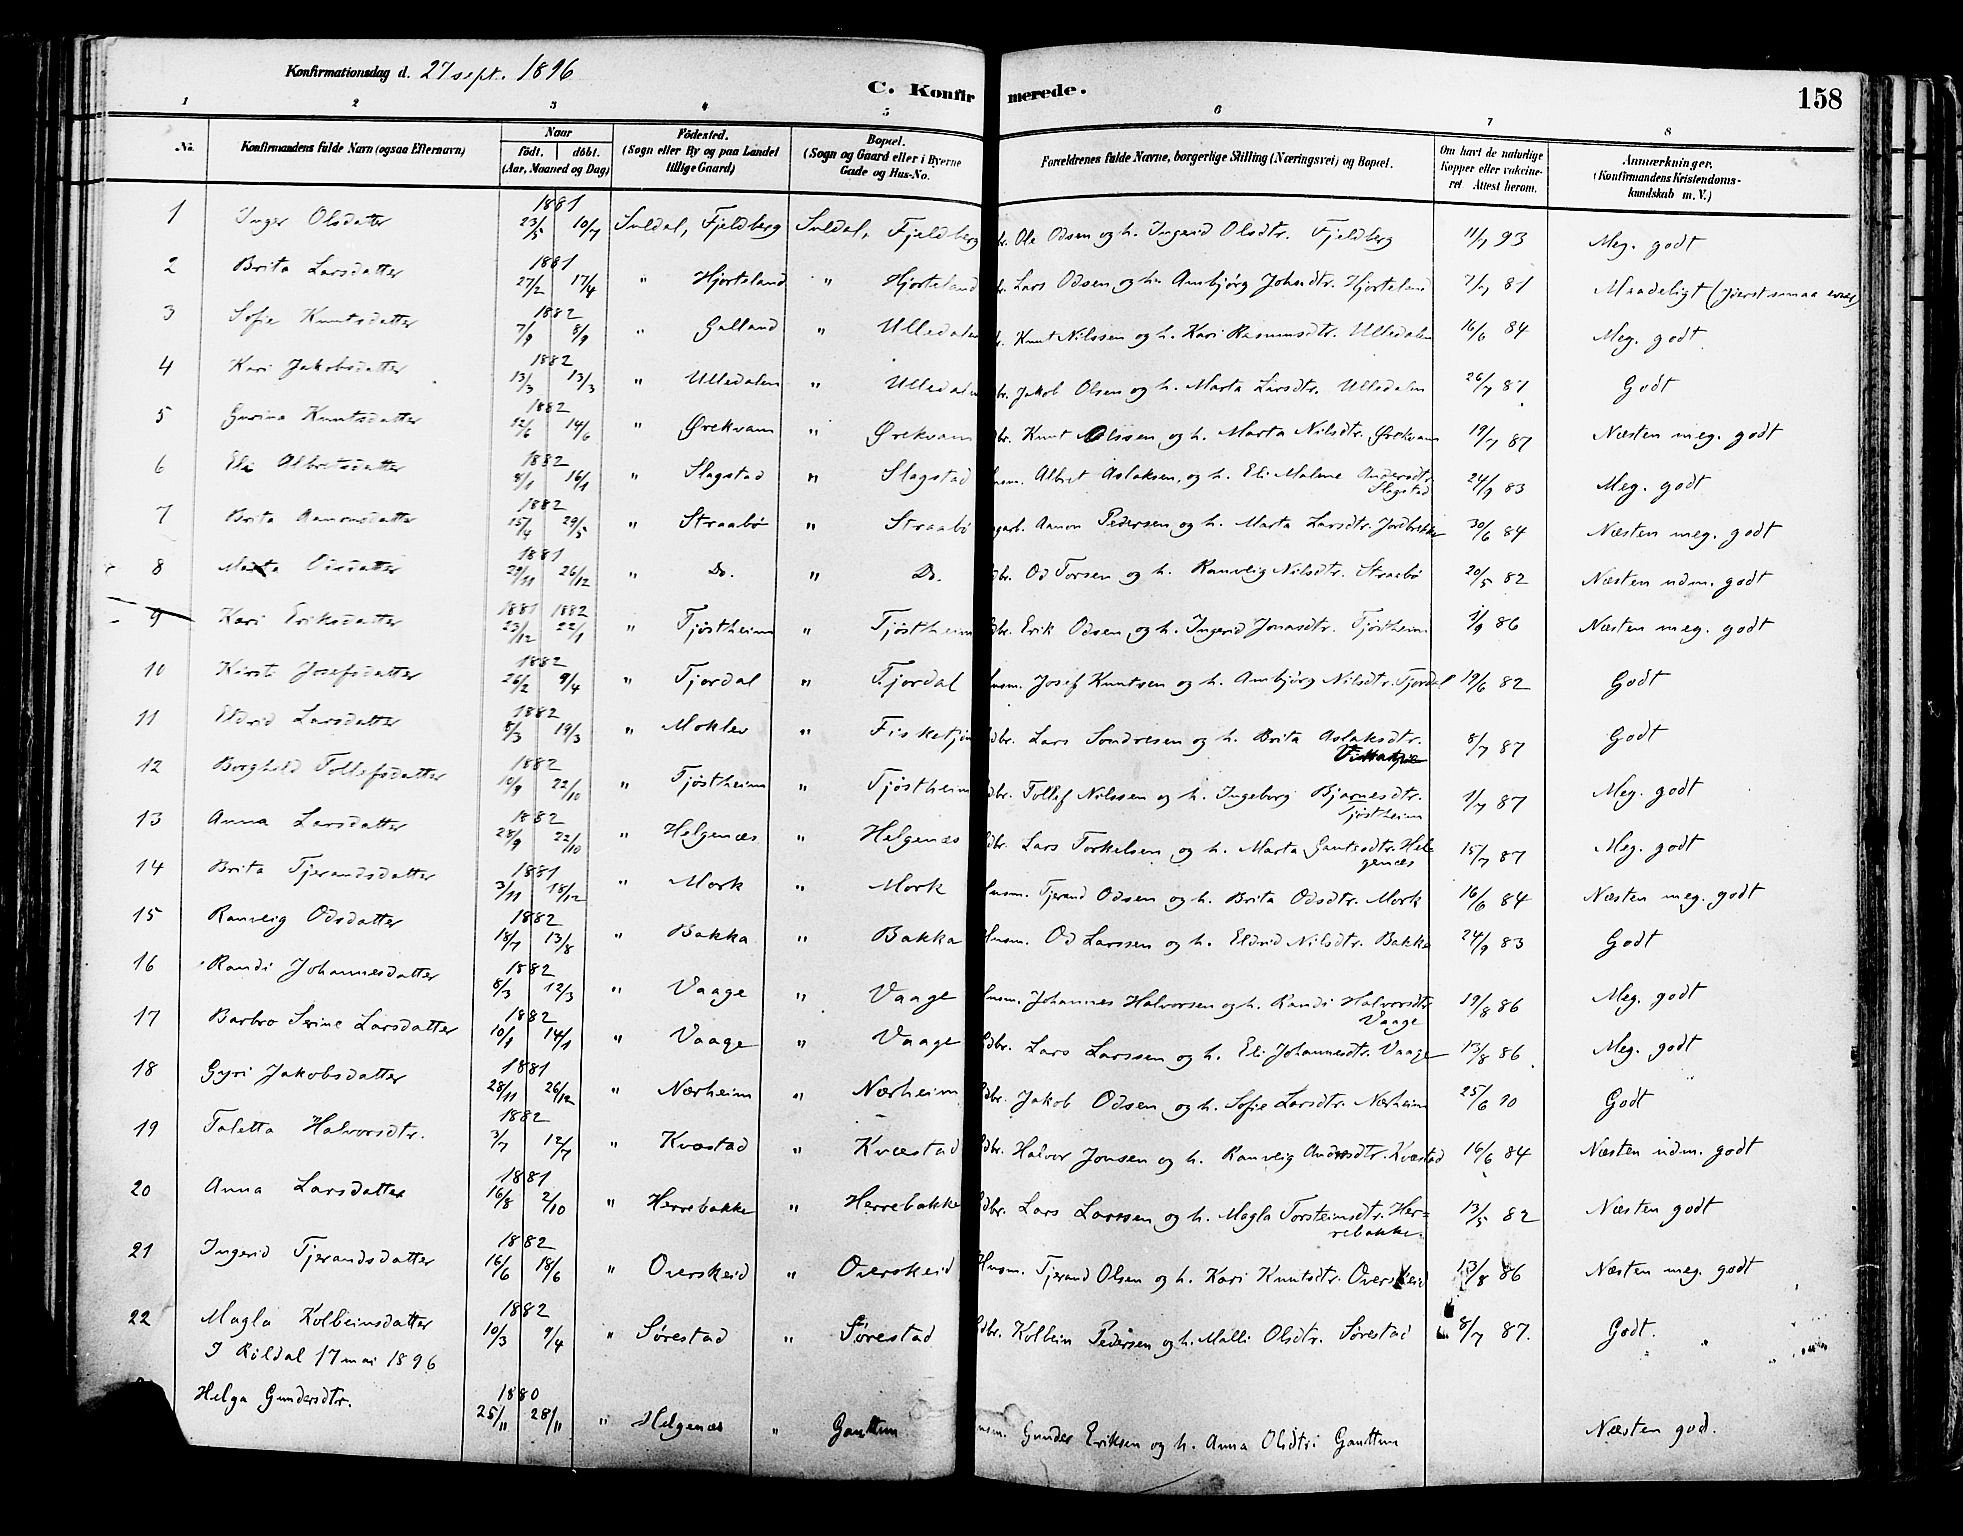 Konfirmationsdag d. 27 sept. 1896
C. Konfirmerede.
158
1 2 3 4 5 6 7 8
No. Konfirmandens fulde Navn (ogsaa Efternavn) Naar født. døbt. (Aar, Maaned og Dag) Fødested. (Sogn eller By og paa Landet tillige Gaard) Bopæl. (Sogn og Gaard eller i Byerne Gade og Hus-No. Forældrenes fulde Navne, borgerlige Stilling (Næringsvei) og Bopæl. Om havt de naturlige Kopper eller vakcineret Attest herom. Anmærkninger. (Konfirmandens Kristendomskundskab m. V.)
1 Inger Olsdatter 1881 23/5 10/7 Suldal, Fjeldberg Suldal, Fjeldberg Ole Odsen og h. Ingerid Olsdtr. Fjeldberg 11/7 93 Meg. godt
2 Brita Larsdatter 1881 27/2 17/4 " Hjorteland " Hjorteland Lars Odsen og h. Ambjørg Johsdtr. Hjorteland 7/7 81 Maadeligt
3 Sofie Knutsdatter 1882 7/9 8/9 " Galland " Ulledalen Knut Nilssen og h. Kari Rasmusdtr. Ulledalen 16/6 84 Meg. godt
4 Kari Jakobsdatter 1882 13/3 13/3 " Ulledalen " Ulledalen Jakob Olsen og h. Marta Larsdtr. Ulledalen 26/7 87 Godt
5 Gurina Knutsdatter 1882 12/6 14/6 " Ørekvam " Ørekvam dbr. Knut Olssen og h. Marta Nilsdtr. Ørekvam 19/7 87 Næsten meg. godt
6 Eli Albretsdatter 1882 8/1 16/1 " Slagstad " Slagstad Albret Aslaksen og h. Eli Malene Andersdtr. Slagstad 24/9 83 Meg. godt
7 Brita Aamonsdatter 1882 15/4 29/5 " Straabø " Straabø Aamon Pedersen og h. Marta Larsdtr. Jordbrekke 30/6 84 Næsten meg. godt
8 Marta Odsdatter 1881 29/11 26/12 " Do. " Do. dbr. Od Torsen og h. Ranveig Nilsdtr. Straabø 20/5 82 Næsten udm. godt
9 Kari Eriksdatter 1881 1882 23/12 22/1 " Tjøstheim " Tjøstheim dbr. Erik Odsen og h. Ingerid Jonasdtr. Tjøstheim 3/9 86 Næsten meg. godt
10 Kirsti Josefsdatter 1882 26/2 9/4 " Fjordal " Fjordal Husm. Josef Knutsen og h. Ambjørg Nilsdtr. Fjordal 19/6 82 Godt
11 Eldrid Larsdatter 1882 8/3 19/3 " Mokler " Fisketjøn dbr. Lars Sondresen og h. Brita Aslaksdtr. 8/7 87 Godt
12 Borghild Tollefsdatter 1882 10/9 22/10 " Tjøstheim " Tjøstheim dbr. Tollef Nilssen og h. Ingeborg Bjarnesdtr. Tjøstheim 1/7 87 Meg. godt
13 Anna Larsdatter 1882 28/9 22/10 " Helgenæs " Helgenæs dbr. Lars Torkelsen og h. Marta Gautesdtr. Helgenæs 15/7 87 Meg. godt
14 Brita Tjerandsdatter 1881 3/11 18/12 " Mork " Mork Husm. Tjerand Odsen og h. Brita Odsdtr. Mork 16/6 84 Næsten meg. godt
15 Ranveig Odsdatter 1882 18/7 13/8 " Bakka " Bakka Husm. Od Larssen og h. Eldrid Nilsdtr. Bakka 24/9 83 Godt
16 Randi Johannesdatter 1882 8/3 12/3 " Vaage " Vaage Husm. Johannes Halvorsen og h. Randi Halvorsdtr. Vaage 19/8 86 Meg. godt
17 Barbro Serine Larsdatter 1882 10/1 14/1 " Vaage " Vaage Gdbr. Lars Larssen og h. Eli Johannesdtr. Vaage 13/8 86. Meg. godt
18 Gyri Jakobsdatter 1881 28/11 26/12 " Nærheim " Nærheim Gdbr. Jakob Odsen og h. Sofie Larsdtr. Nærheim 25/6 90 Godt
19 Taletta Halvorsdtr. 1882 3/7 12/7 " Kvæstad " Kvæstad Gdbr. Halvor Jonsen og h. Ranveig Andersdtr. Kvæstad 16/6 84 Næsten udm. godt
20 Anna Larsdatter 1881 16/8 2/10 " Herrebakke " Herrebakke Gdbr. Lars Larssen og h. Magla Torsteinsdtr. Herrebakke. 13/5 82 Næsten godt
21 Ingerid Tjerandsdatter 1882 16/6 18/6 " Overskeid " Overskeid Husm. Tjerand Olsen og h. Kari Knutsdtr. Overskeid 13/8 86 Næsten meg. godt
22 Magla Kolbeinsdatter 1882 10/3 9/4 " Sørestad " Sørestad Gdbr. Kolbein Pedersen og h. Malli Olsdtr. Sørestad 8/7 87. Godt.
I Røldal 17 mai 1896
Helga Gundersdtr. 1880 25/11 28/11 " Helgenæs " Gauttun Gunder Eriksen og h. Anna Olsdtr. Gauttun Næsten god.